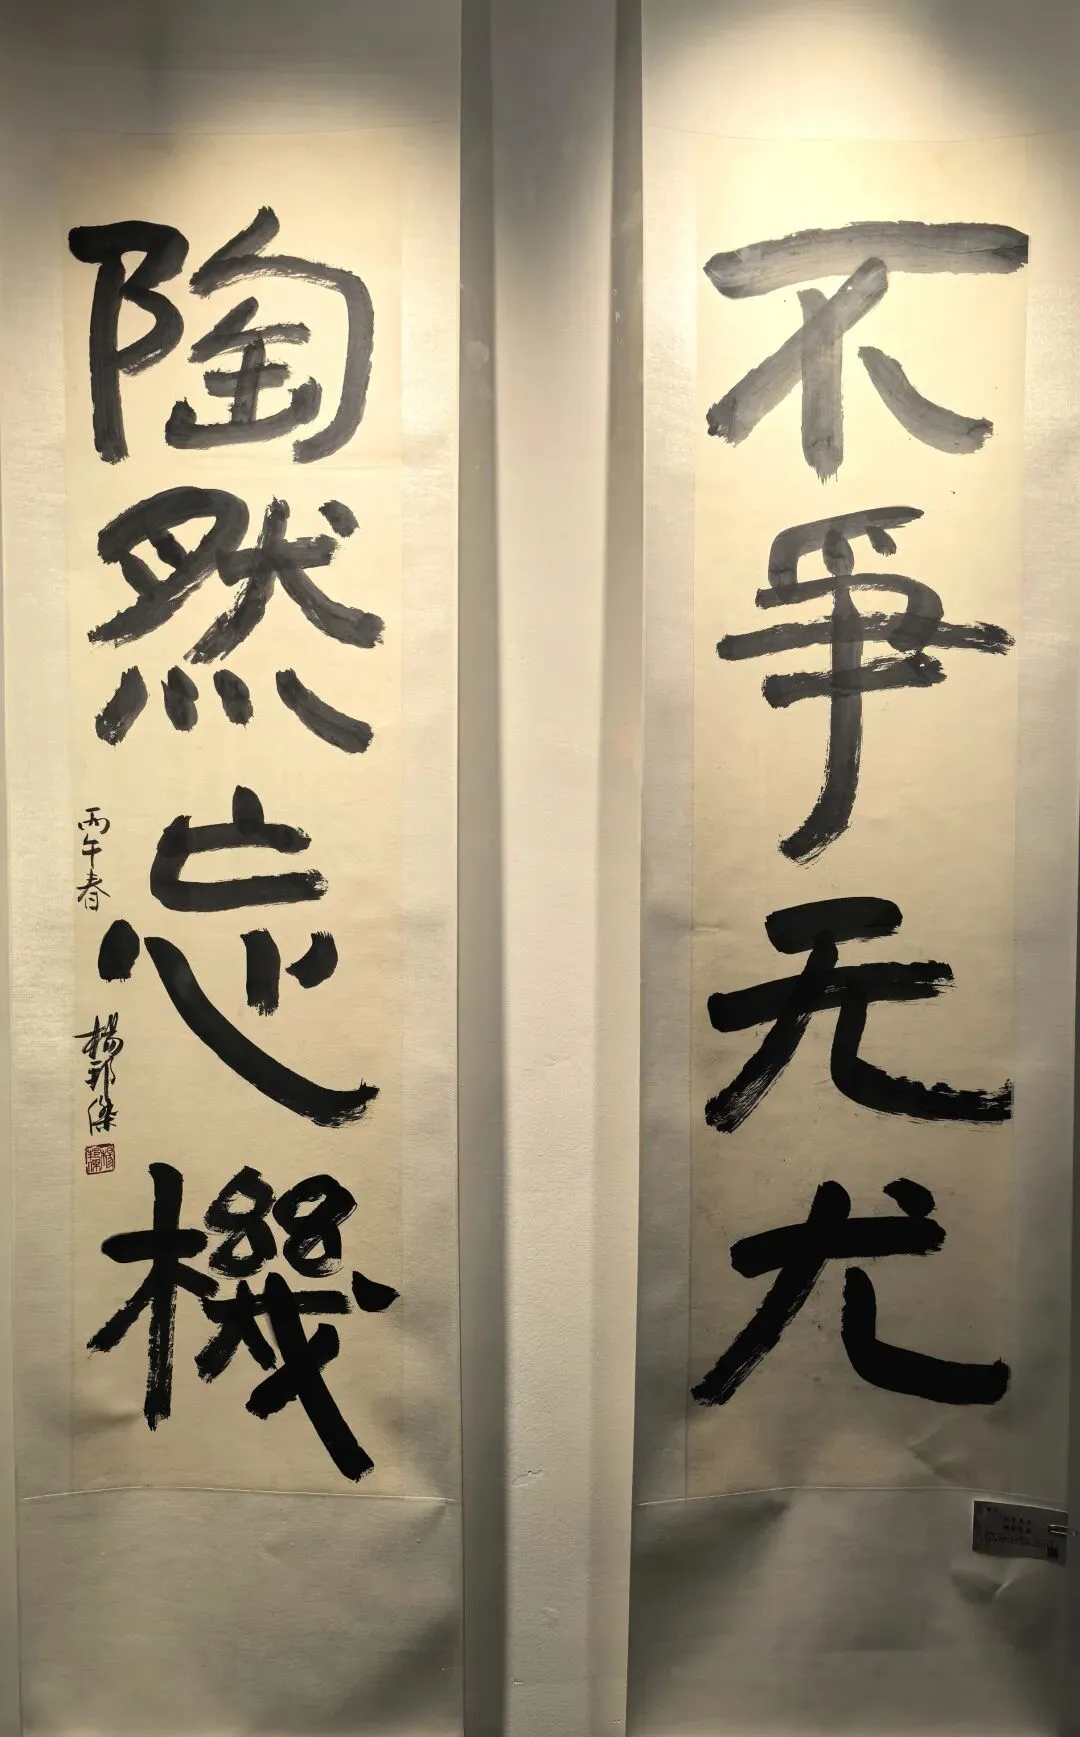 不爭无尤
陶然忘機
丙午春
楊邦傑